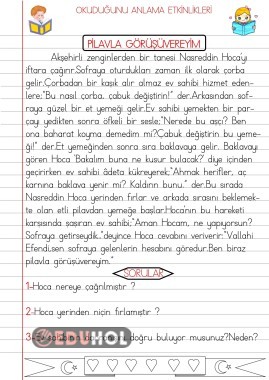 OKUDUĞUNU ANLAMA ETKİNLİKLERİ
PİLAVLA GÖRÜŞÜVEREYİM
Akşehirli zenginlerden bir tanesi Nasreddin Hoca'yı
iftara çağırır.Sofraya oturdukları zaman ilk olarak çorba
gelir.Çorbadan bir kaşık alır almaz ev sahibi hizmet eden-
lere:"Bu nasıl çorba, çabuk değiştirin!" der.Arkasından sof-
raya güzel bir et yemeği gelir.Ev sahibi yemekten bir par-
çayı yedikten sonra öfkeli bir sesle;"Nerede bu aşçı? Ben
ona baharat koyma demedim mi?Çabuk değiştirin bu yeme-
ği!" der.Et yemeğinden sonra sıra baklavaya gelir. Baklavayı
gören Hoca 'Bakalım buna ne kusur bulacak?' diye içinden
geçirirken ev sahibi âdeta kükreyerek;"Ahmak herifler, aç
karnına baklava yenir mi? Kaldırın bunu." der.Bu sırada
Nasreddin Hoca yerinden fırlar ve arkada sırasını beklemek-
te olan etli pilavdan yemeğe başlar.Hoca'nın bu hareketi
karşısında şaşıran ev sahibi;"Aman Hocam, ne yapıyorsun?
Sofraya getirseydik.."deyince Hoca cevabını veriverir:"Vallahi
Efendi,sen sofraya gelenlerin hesabını göredur.Ben biraz
pilavla görüşüvereyim."
SORULAR
1-Hoca nereye çağrılmıştır ?
2-Hoca yerinden niçin fırlamıştır ?
3-Ev sahibinin doğru buluyor musunuz?Neden?